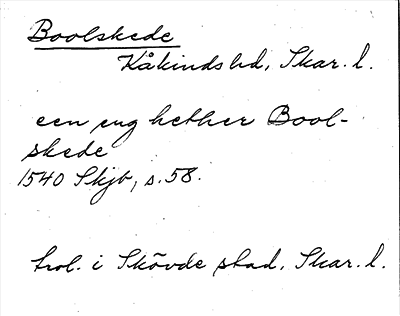 Boolskede
Kåkinds hd, Skar. l.
een eng hether Bool-
skede
1540 Skjb, s. 58.
trol. i Skövde stad, Skar. l.